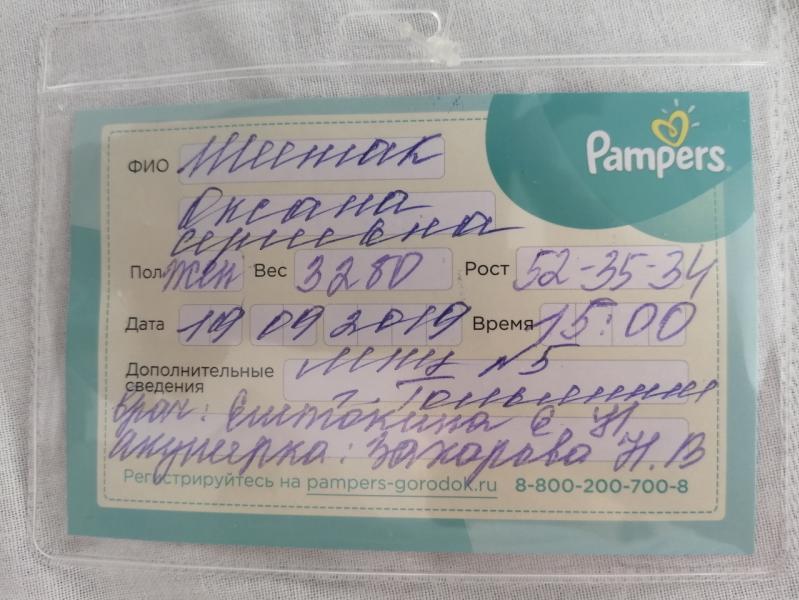 Pampers
ФИО
Оксана
Сергеевна
Пол жен Вес 3280 Рост 52-35-34
Дата 19 09 2019 Время 15:00
Дополнительные №5
сведения Тольятти
врач: С. Н
акушерка: Захарова Н. В
Регистрируйтесь на pampers-gorodok.ru 8-800-200-700-8